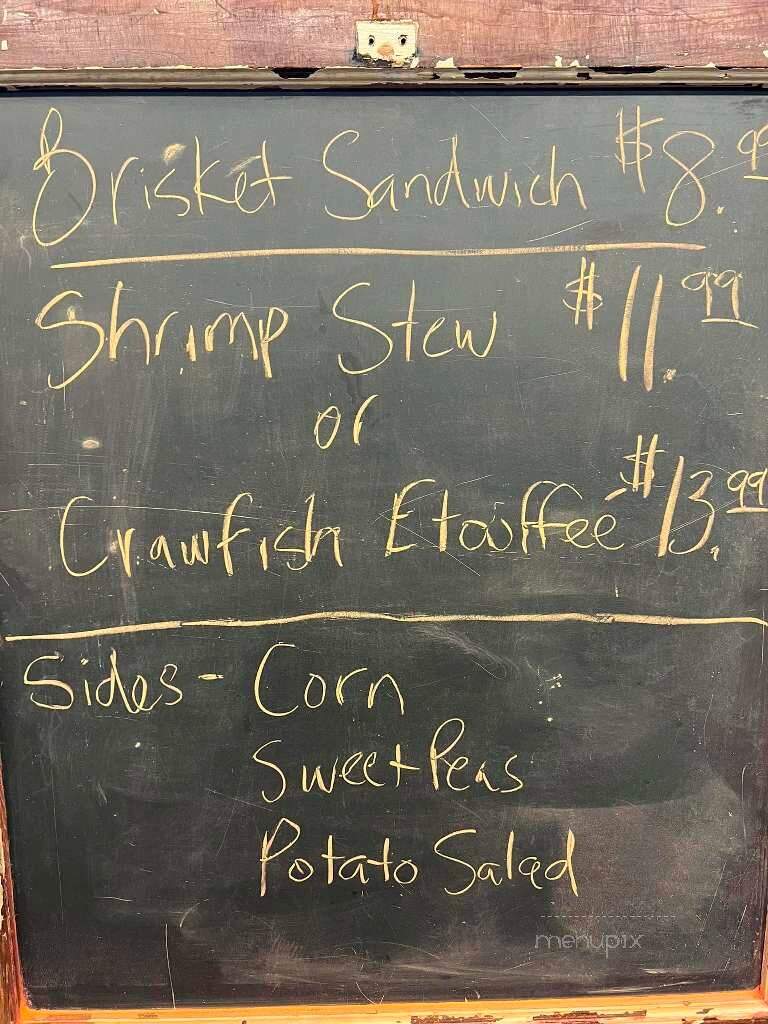 Brisket Sandwich $8.99
Shrimp Stew $11.99
or
Crawfish Etouffeé $13.99
Sides - Corn
Sweet Peas
Potato Salad
menupix